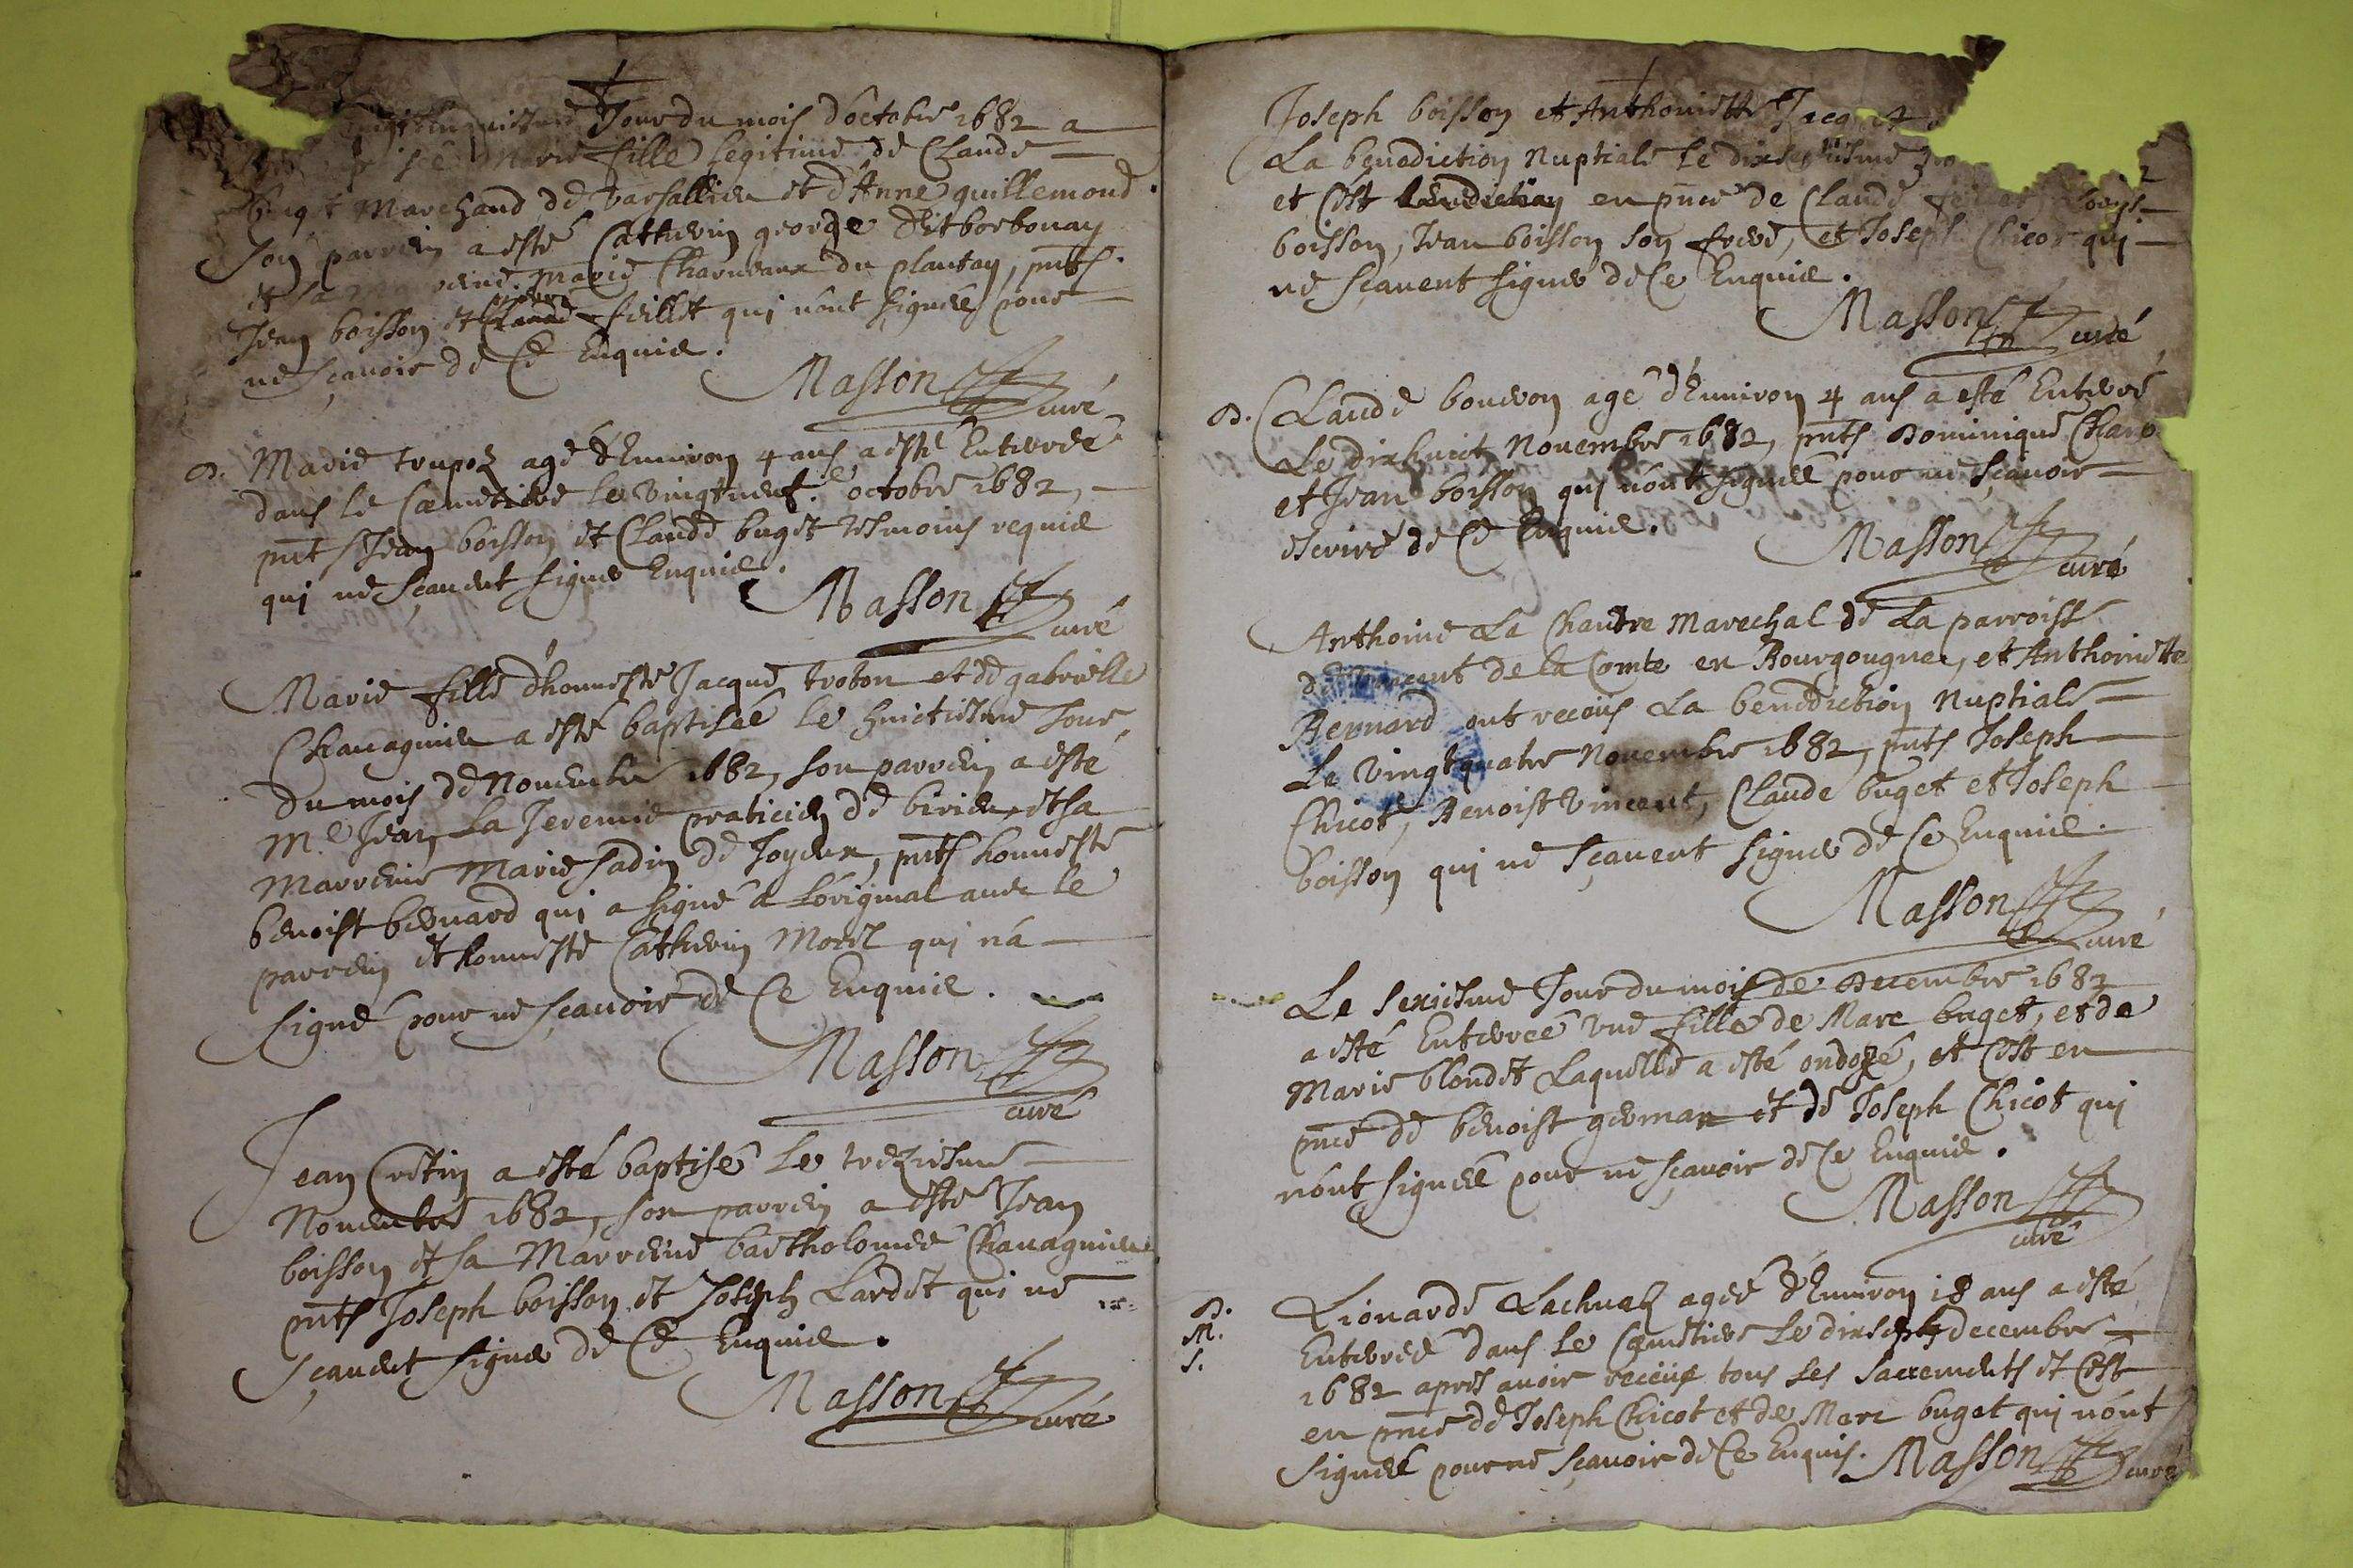 Jour du mois d'octobre 1682 a
Marie fille legitime de Claude
buget Marchand de varsallieu et d'Anne quillemond.
son parrein a esté Catherin george dit borbouay
et sa marreine marie Charveaux du plantay, pnts
Jean boisson et feillet qui n'ont signéé pour
ne sçavoir de Ce Enquid.
Masson curé
D. Marie trupoz agé d'Environ 4 ans a esté Enterréé
dans le Cæmetiere le vingtneuf.e octobre 1682,
pnts Jean boisson et Claude buget tesmoins requid
qui ne sçauent signer Enquid.
Masson curé
Marie fille d'honneste Jacque troton et de gabrielle
Chauagnieu a esté baptiséé le huictiesme Jour
du mois de Nouembre 1682, son parrein a esté
M.e Jean La Jeremie praticien de birieu, et sa
Marreine Marie sadin de Joyeux, pnts honneste
benoist bernard qui a signé a l'original auec le
parrein et honneste Catherin Morel qui n'a
signé pour ne sçauoir de Ce Enquid.
Masson curé
Jean Cretin a esté baptisé le treziesme
Nouembre 1682, son parrein a esté Jean
boisson et sa Marreine bartholoméé Chauagnieu
pnts Joseph boisson et Joseph Lardet qui ne
sçauent signer de Ce Enquid.
Masson curé
Joseph boisson et Anthoinette Jacq
La benediction Nuptiale le dixseptiesme
et C'est en pnce de Claude
boisson, Jean boisson son frere, et Joseph Chicot qui
ne sçauent signer de Ce Enquid.
Masson curé
D. Claude bouvron agé d'Environ 4 ans a esté Enterré
Le dixhuict Nouembre 1682, pnts Dominique Charv
et Jean boisson qui n'ont signéé pour ne sçauoir
escrire de Ce Enquid.
Masson curé
Anthoine La Chantre Marechal de La parroisse
de vincent de la Comte en Bourgougne, et Anthoinete
Bernard ont receus La benediction Nuptiale
Le vingtquatre Nouembre 1682, pnts Joseph
Chicot, Benoist vincent, Claude buget et Joseph
boisson qui ne sçauent signer de Ce Enquid.
Masson curé
Le sexiesme Jour du mois de Decembre 1682
a esté Enterréé vne fille de Marc buget, et de
Marie blondet Laquelle a esté ondoyé, et C'est en
pnce de benoist german et de Joseph Chicot qui
n'ont signéé pour ne sçauoir de Ce Enquid.
Masson curé
D.
M.
S.
Lionarde Lachnal agéé d'Environ 18 ans a esté
Enterréé dans le Cæmetiere Le dixsept decembre
1682 apres auoir receue tous les sacrements et C'est
en pnce de Joseph Chicot et de Marc buget qui n'ont
signéé pour ne sçauoir de Ce Enquis. Masson curé